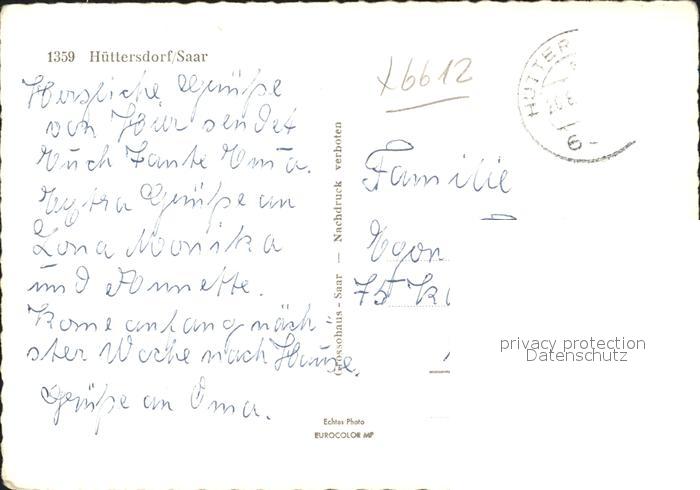 1359 Hüttersdorf/Saar
Herzliche Grüße
von Hier sendet
Euch Tante Erna.
Extra Grüße an
Lona Monika
und Annette.
Kome anfang näch=
ster Woche nach Hause.
Grüße an Oma.
Grossohaus - Saar — Nachdruck verboten
Echtes Photo
EUROCOLOR MP
X6612
HÜTTER
Familie
Egon
75 Ka
privacy protection
Datenschutz